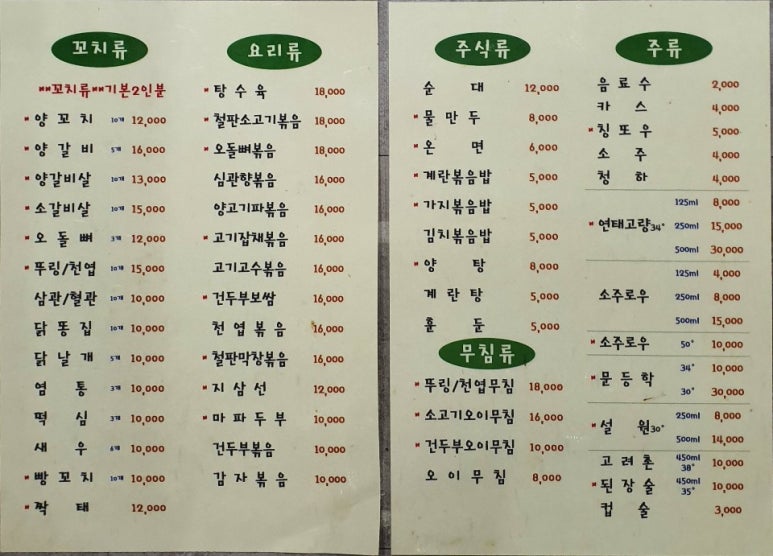 꼬치류
**꼬치류**기본2인분
*양꼬치 10개 12,000
*양갈비 5개 16,000
*양갈비살 10개 13,000
*소갈비살 10개 15,000
*오돌뼈 3개 12,000
*뚜링/천엽 10개 15,000
삼관/혈관 10개 10,000
닭똥집 10개 10,000
닭날개 5개 10,000
염통 3개 10,000
떡심 3개 10,000
새우 6개 10,000
*빵꼬치 10개 10,000
*짝태 12,000
요리류
*탕수육 18,000
*철판소고기볶음 18,000
*오돌뼈볶음 18,000
심관향볶음 16,000
양고기파볶음 16,000
*고기잡채볶음 16,000
고기고수볶음 16,000
*건두부보쌈 16,000
천엽볶음 16,000
*철판막창볶음 16,000
*지삼선 12,000
*마파두부 10,000
건두부볶음 10,000
감자볶음 10,000
주식류
순대 12,000
*물만두 8,000
*온면 6,000
*계란볶음밥 5,000
*가지볶음밥 5,000
김치볶음밥 5,000
*양탕 8,000
계란탕 5,000
훈둔 5,000
무침류
*뚜링/천엽무침 18,000
*소고기오이무침 16,000
*건두부오이무침 10,000
오이무침 8,000
주류
음료수 2,000
카스 4,000
*칭또우 5,000
소주 4,000
청하 4,000
125ml 8,000
*연태고량34° 250ml 15,000
500ml 30,000
125ml 4,000
소주로우 250ml 8,000
500ml 15,000
*소주로우 50° 10,000
34° 10,000
*문등학
30° 30,000
250ml 8,000
*설원30°
500ml 14,000
고려촌 450ml 38° 10,000
*된장술 450ml 35° 10,000
컵술 3,000